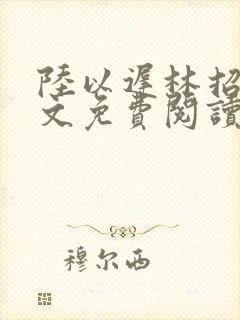 陸以遲林招
文免費閱讀
穆尔西